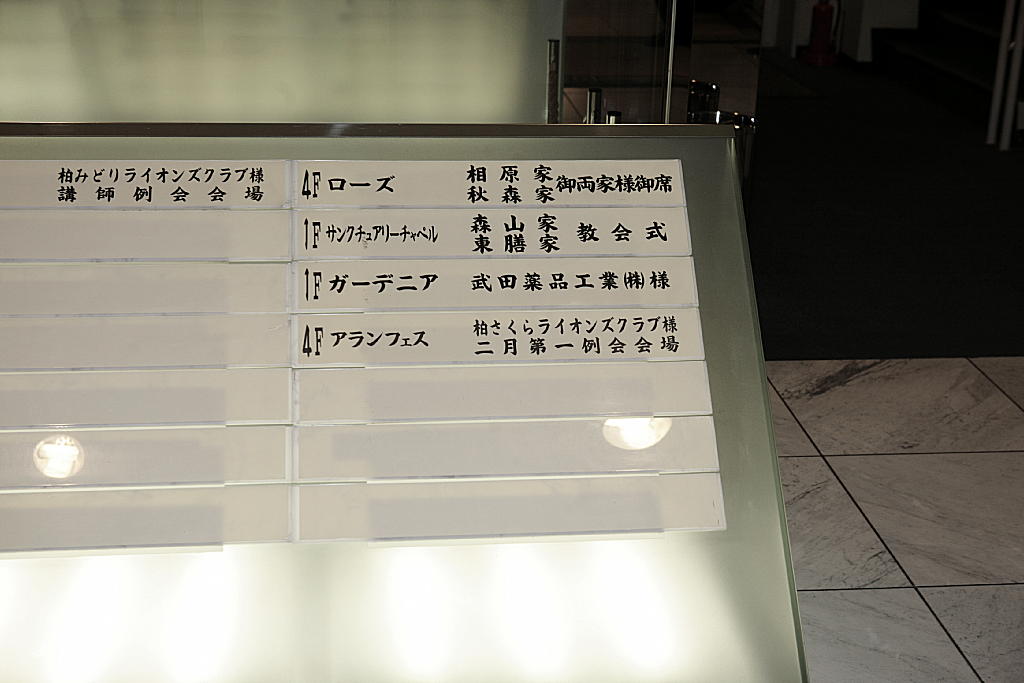 柏みどりライオンズクラブ様
講師例会会場
4F ローズ 相原家 秋森家 御両家様御席
1F サンクチュアリーチャペル 森山家 東膳家 教会式
1F ガーデニア 武田薬品工業㈱様
4F アランフェス 柏さくらライオンズクラブ様
二月第一例会会場